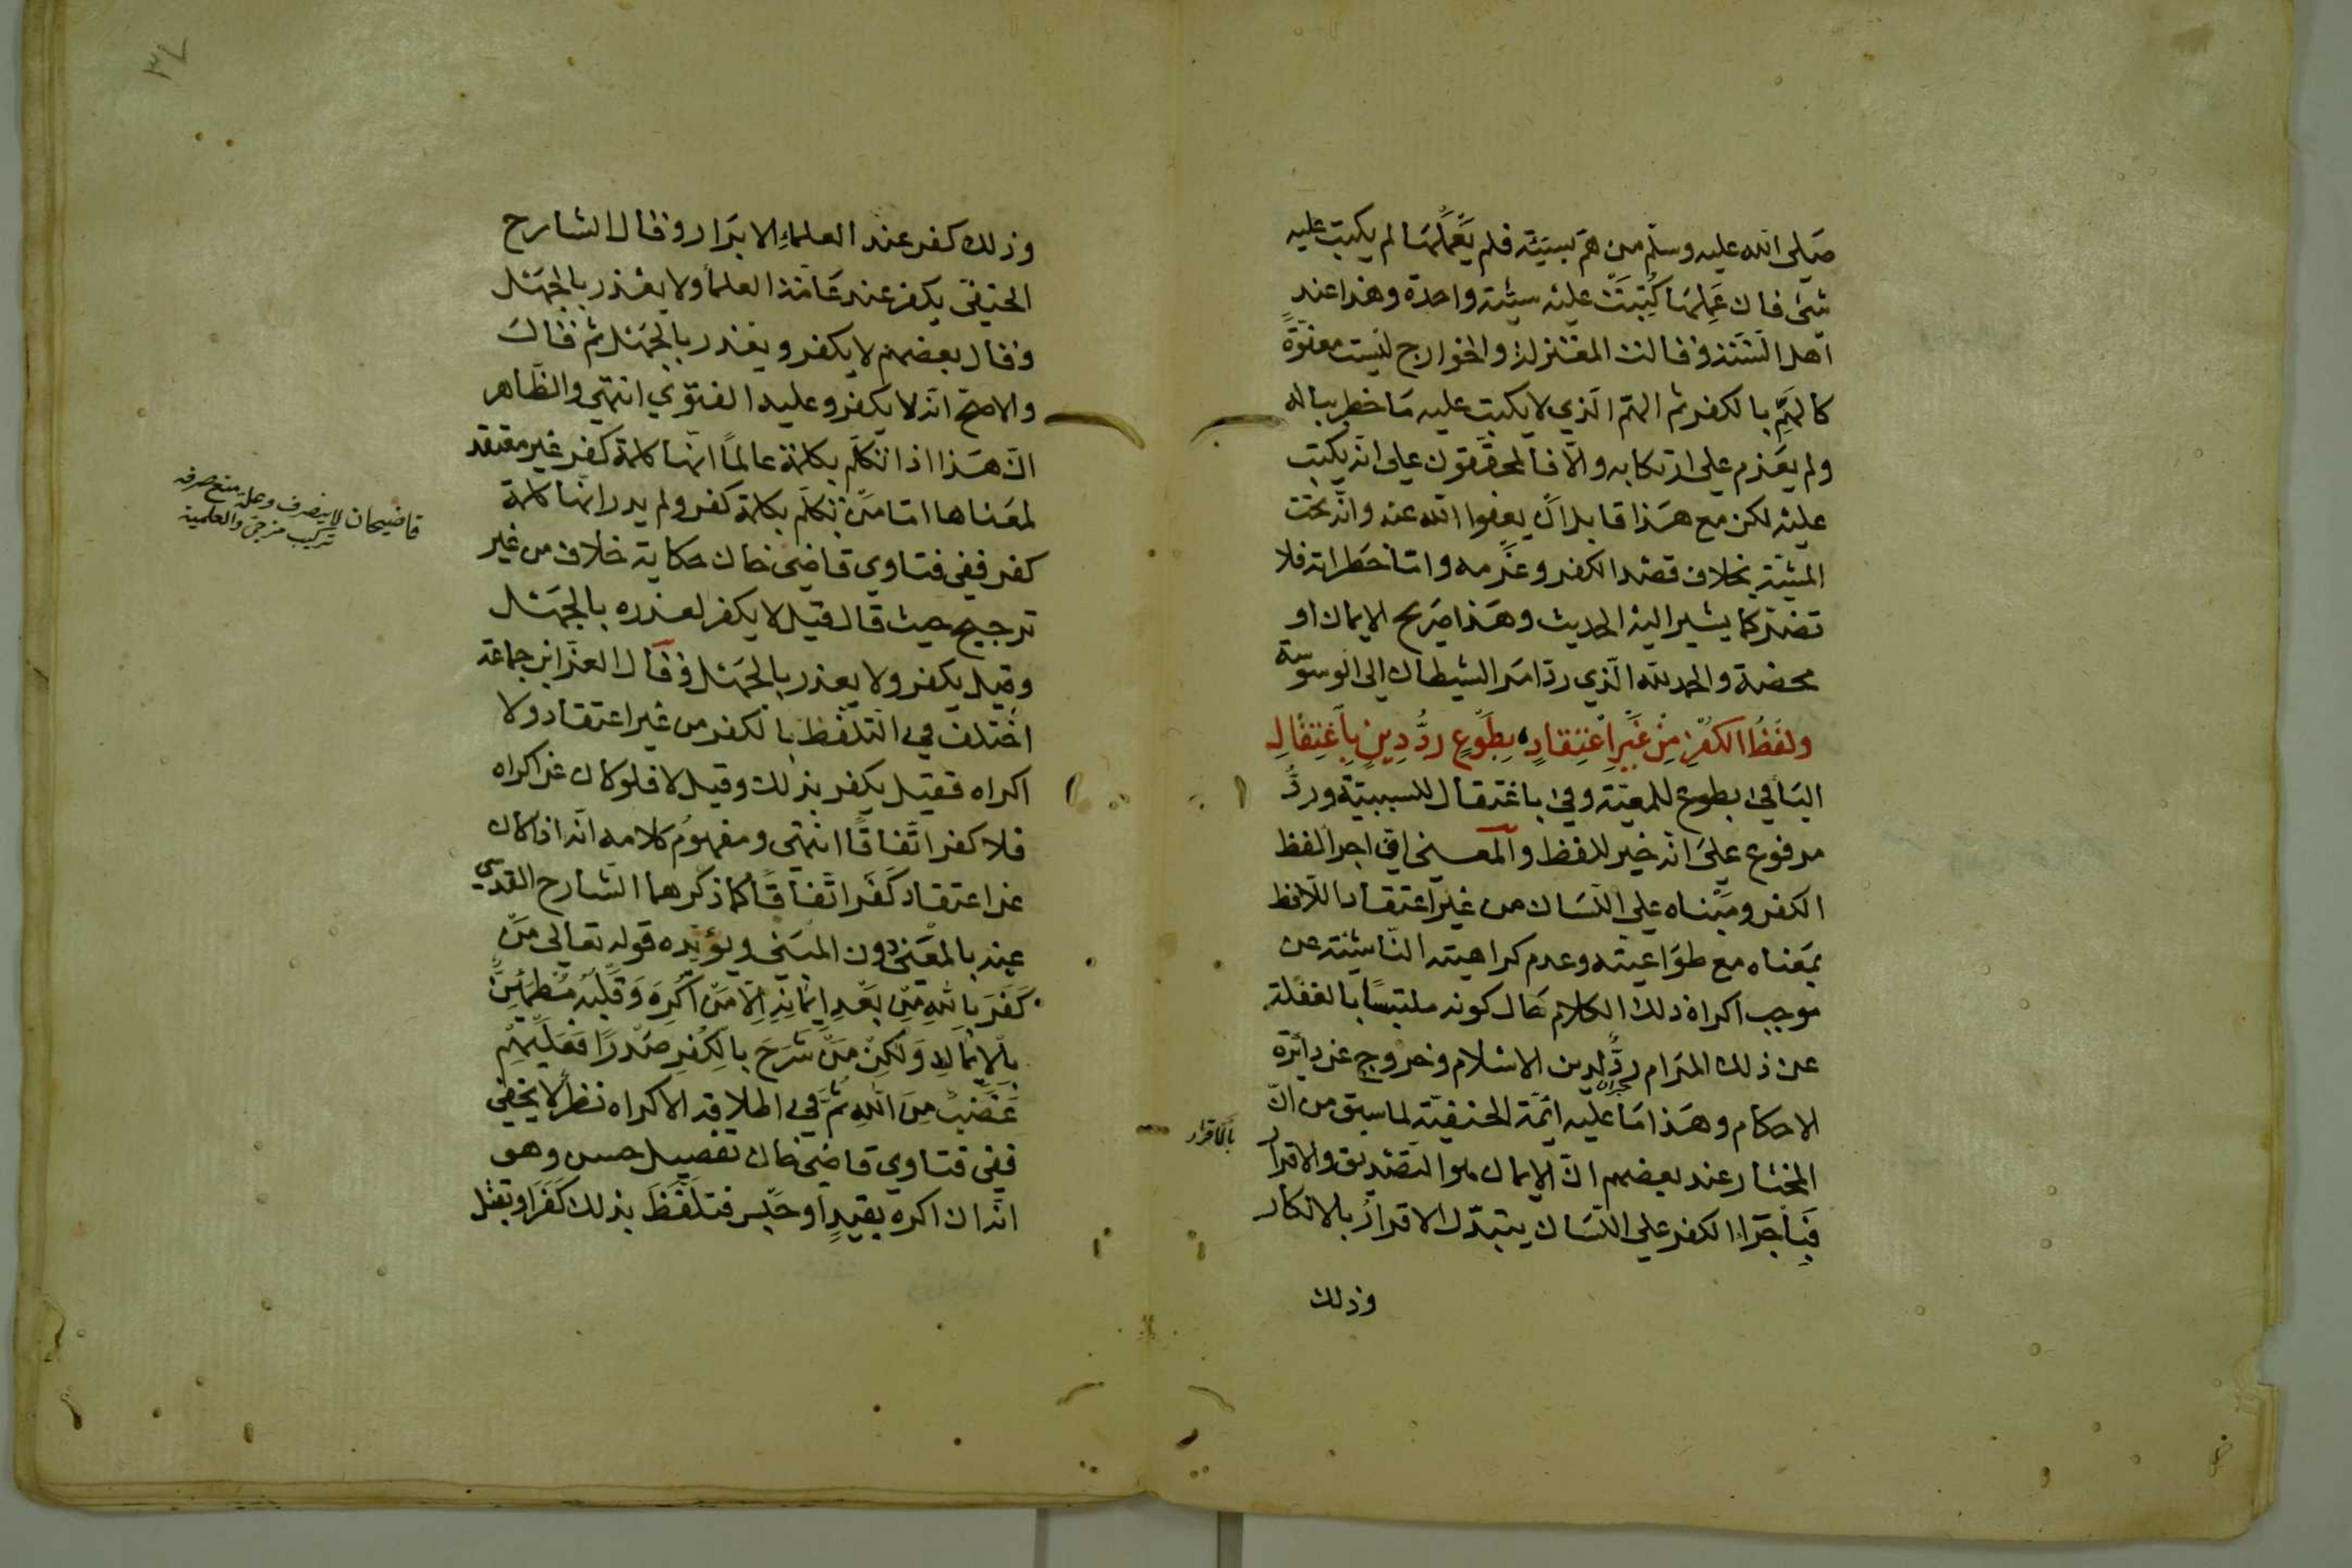 صلى الله عليه وسلم من هم بسيئة فلم يعملها لم يكتب عليه
شئ فان عملها كتبت عليه سيئة واحدة وهذا عند
اهل السنة وقالت المعتزلة والخوارج ليست معفوة
كالهم بالكفر ثم الهم الذي لا يكتب عليه ما خطر بباله
ولم يعزم على ارتكابه والا فالمحققون على انه يكتب
عليه لكن مع هذا قابل ان يعفوا الله عنه وانه تحت
المشية بخلاف قصد الكفر وعزمه واما خطراته فلا
تضر كما يشير اليه الحديث وهذا صريح الايمان او
محضه والحمد لله الذي رد امر الشيطان الى الوسوسة
ولفظ الكفر من غير اعتقاد بطوع رد دين باغتفال
البا في بطوع للمعية وفي باغتفال للسببية ورد
مرفوع على انه خبر للفظ والمعنى اي اجرا لفظ
الكفر ومبناه على اللسان من غير اعتقاد اللافظ
بمعناه مع طواعيته وعدم كراهيته الناشئة عن
موجب اكراه ذلك الكلام حال كونه ملتبسا بالغفلة
عن ذلك المرام رد لدين الاسلام وخروج عن دائرة
الاحكام وهذا ما عليه ائمة الحنفية لما سبق من ان
المختار عند بعضهم ان الايمان هو التصديق والاقرار
فباجراء الكفر على اللسان يتبدل الاقرار بالانكار
وذلك
وذلك كفر عند العلماء الابرار وقال الشارح
الحنفي يكفر عند عامة العلما ولا يعذر بالجهل
وقال بعضهم لا يكفر ويعذر بالجهل ثم قال
والاصح انه لا يكفر وعليه الفتوي انتهى والظاهر
ان هذا اذا تكلم بكلمة عالما انها كلمة كفر غير معتقد
لمعناها اما من تكلم بكلمة كفر ولم يدر انها كلمة
كفر ففي فتاوي قاضي خان حكاية خلاف من غير
ترجيح حيث قال قيل لا يكفر لعذره بالجهل
وقيل يكفر ولا يعذر بالجهل وقال العز ابن جماعة
اختلف في التلفظ بالكفر من غير اعتقاد ولا
اكراه فقيل يكفر بذلك وقيل لا فلو كان عن اكراه
فلا كفر اتفاقا انتهى ومفهوم كلامه انه اذا كان
عن اعتقاد كفر اتفاقا كما ذكرهما الشارح القدسي
عنه بالمعنى دون المبنى ويؤيده قوله تعالى من
كفر بالله من بعد ايمانه الا من اكره وقلبه مطمئن
بالايمان ولكن من شرح بالكفر صدرا فعليهم
غضب من الله ثم في اطلاقه الاكراه نظر لا يخفى
ففي فتاوي قاضي خان تفصيل حسن وهو
انه ان اكره بقيد او حبس فتلفظ بذلك كفر او بقتل
قاضيخان لا ينصرف وعلة منع صرفه
تركيب مزجي والعلمية